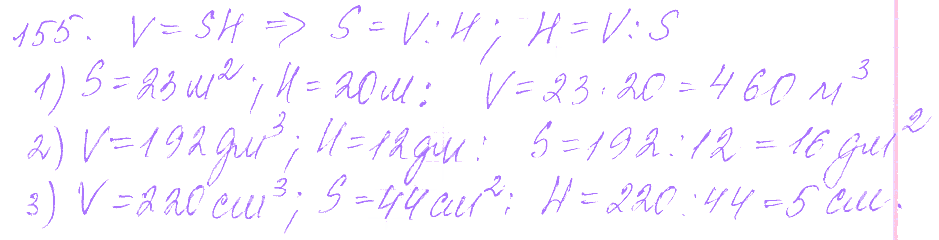 155. V = SH => S = V : H ; H = V : S
1) S = 23 м² ; H = 20 м : V = 23 · 20 = 460 м³
2) V = 192 дм³ ; H = 12 дм : S = 192 : 12 = 16 дм²
3) V = 220 см³ ; S = 44 см² : H = 220 : 44 = 5 см.